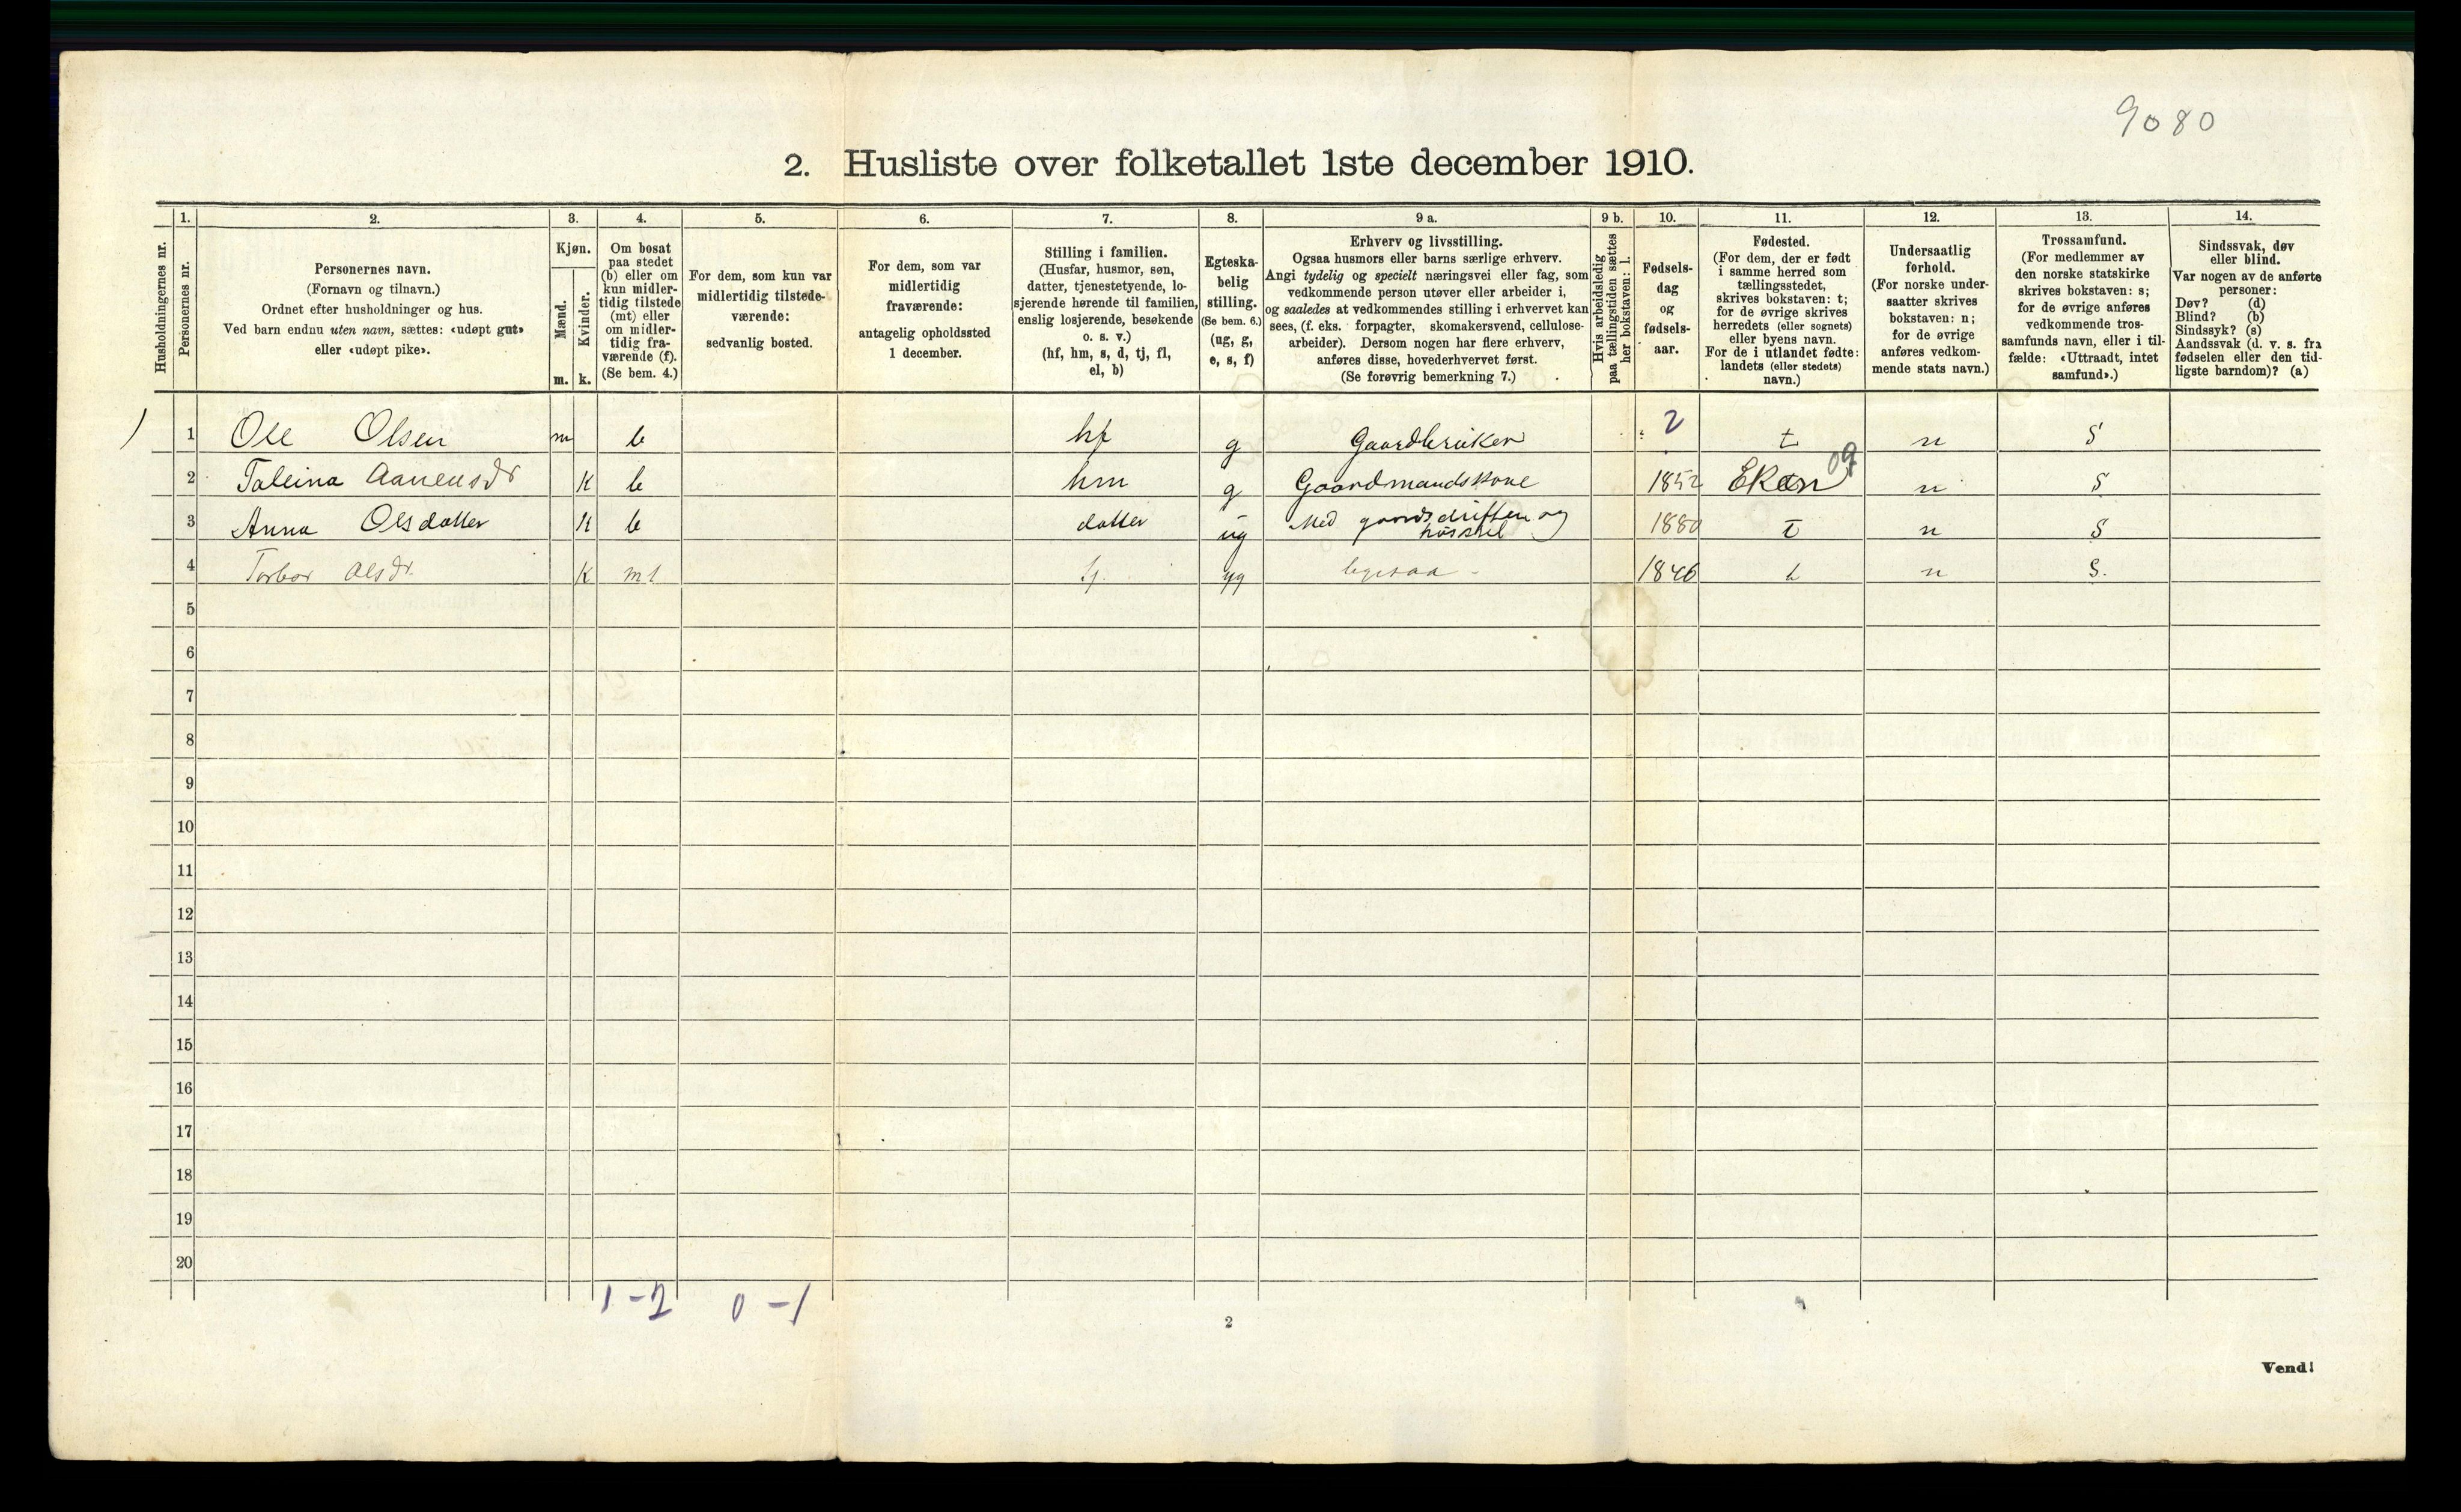 9080
2. Husliste over folketallet 1ste december 1910.
Husholdningernes nr.
1.
Personernes nr.
2.
Personernes navn.
(Fornavn og tilnavn.)
Ordnet efter husholdninger og hus.
Ved barn endnu uten navn, sættes: «udøpt gut»
eller «udøpt pike».
3.
Kjøn.
Mænd.
Kvinder.
m. k.
4.
Om bosat
paa stedet
(b) eller om
kun midler-
tidig tilstede
(mt) eller
om midler-
tidig fra-
værende (f).
(Se bem. 4.)
5.
For dem, som kun var
midlertidig tilstede-
værende:
sedvanlig bosted.
6.
For dem, som var
midlertidig
fraværende:
antagelig opholdssted
1 december.
7.
Stilling i familien.
(Husfar, husmor, søn,
datter, tjenestetyende, lo-
sjerende hørende til familien,
enslig losjerende, besøkende
o. s. v.)
(hf, hm, s, d, tj, fl,
el, b)
8.
Egteska-
belig
stilling.
(Se bem. 6.)
(ug, g,
e, s, f)
9 a.
Erhverv og livsstilling.
Ogsaa husmors eller barns særlige erhverv.
Angi tydelig og specielt næringsvei eller fag, som
vedkommende person utøver eller arbeider i,
og saaledes at vedkommendes stilling i erhvervet kan
sees, (f. eks. forpagter, skomakersvend, cellulose-
arbeider). Dersom nogen har flere erhverv,
anføres disse, hovederhvervet først.
(Se forøvrig bemerkning 7.)
9 b.
Hvis arbeidsledig
paa tællingstiden sættes
her bokstaven: l.
10.
Fødsels-
dag
og
fødsels-
aar.
11.
Fødested.
(For dem, der er født
i samme herred som
tællingsstedet,
skrives bokstaven: t;
for de øvrige skrives
herredets (eller sognets)
eller byens navn.
For de i utlandet fødte:
landets (eller stedets)
navn.)
12.
Undersaatlig
forhold.
(For norske under-
saatter skrives
bokstaven: n;
for de øvrige
anføres vedkom-
mende stats navn.)
13.
Trossamfund.
(For medlemmer av
den norske statskirke
skrives bokstaven: s;
for de øvrige anføres
vedkommende tros-
samfunds navn, eller i til-
fælde: «Uttraadt, intet
samfund».)
14.
Sindssvak, døv
eller blind.
Var nogen av de anførte
personer:
Døv? (d)
Blind? (b)
Sindssyk? (s)
Aandssvak (d. v. s. fra
fødselen eller den tid-
ligste barndom)? (a)
1 Ole Olsen m b hf g Gaardbruker 2 t n S
2 Taleina Aanensdr K b hm g Gaardmandskone 1852 Eken 09 n S
3 Anna Olsdatter K b datter ug Med gaardsdriften og
husstel 1880 t n S
4 Torbor Olsdr. K mt tj. ug 1846 t n S.
5
6
7
8
9
10
11
12
13
14
15
16
17
18
19
20
1-2 0-1
2
Vend!